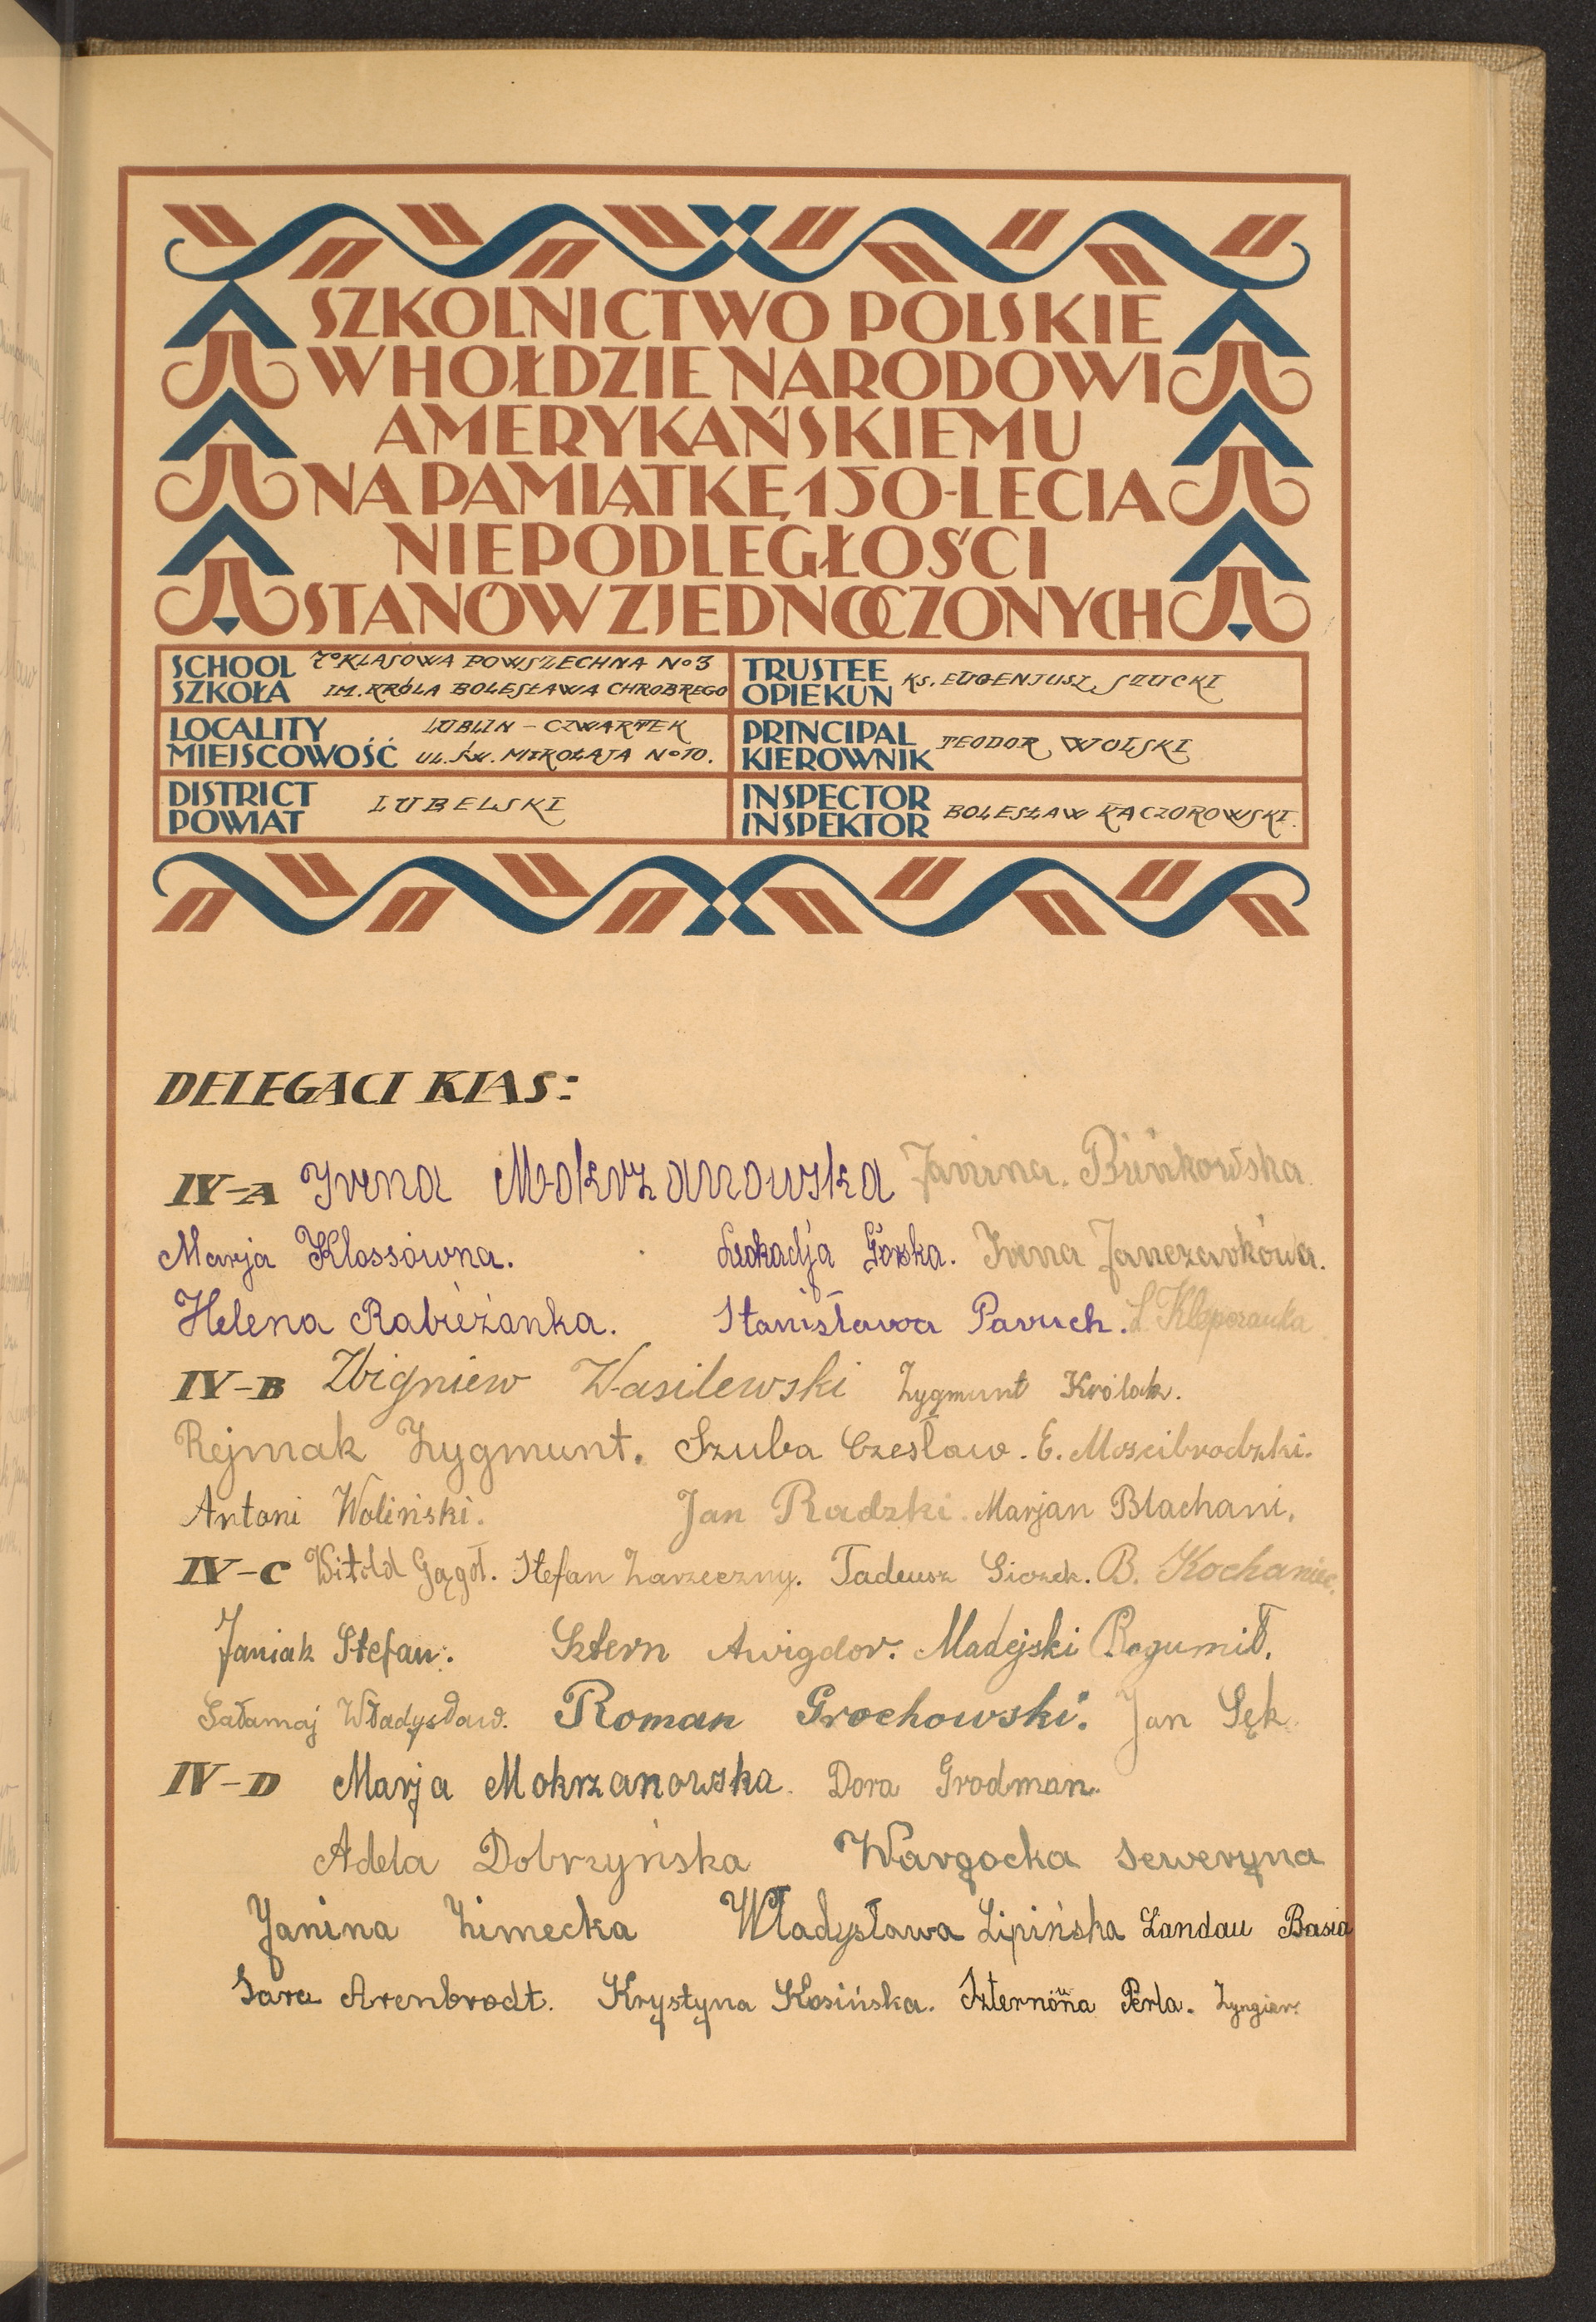 SZKOLNICTWO POLSKIE
W HOŁDZIE NARODOWI
AMERYKAŃSKIEMU
NA PAMIĄTKĘ 150-LECIA
NIEPODLEGŁOŚCI
STANÓW ZJEDNOCZONYCH
SCHOOL
SZKOŁA
7º KLASOWA POWSZECHNA Nº 3
IM. KRÓLA BOLESŁAWA CHROBREGO
TRUSTEE
OPIEKUN
KS. EUGENJUSZ SZUCKI
LOCALITY
MIEJSCOWOŚĆ
LUBLIN – CZWARTEK
UL. ŚW. MIKOŁAJA Nº 10.
PRINCIPAL
KIEROWNIK
TEODOR WOLSKI
DISTRICT
POWIAT
LUBELSKI
INSPECTOR
INSPEKTOR
BOLESŁAW KACZOROWSKI.
DELEGACI KLAS:
IV-A Irena Mokrzanowska Janina. Bieńkowska.
Marja Klossówna. Leokadja Górska. Irena Janczarkówa.
Helena Rabieżanka. Stanisława Paruch. L.
IV-B Zbigniew Wasilewski Zygmunt Królak.
Rejmak Zygmunt. Szuba Czesław. E. Moscibrodzki.
Antoni Woliński. Jan Radzki. Marjan Blachani.
IV-C Witold Gągoł. Stefan Zarzeczny. Tadeusz Siczek. B. Kochaniec.
Janiak Stefan. Sztern Awigdor. Madejski Bogumił.
Sałamaj Władysław. Roman Grochowski. Jan Sęk.
IV-D Marja Mokrzanowska. Dora Grodman.
Adela Dobrzyńska Wargocka Seweryna
Janina Zimecka Władysława Lipińska Landau Basia
Sara Arenbrodt. Krystyna Kosińska. Szternóna Perla. Zyngier.